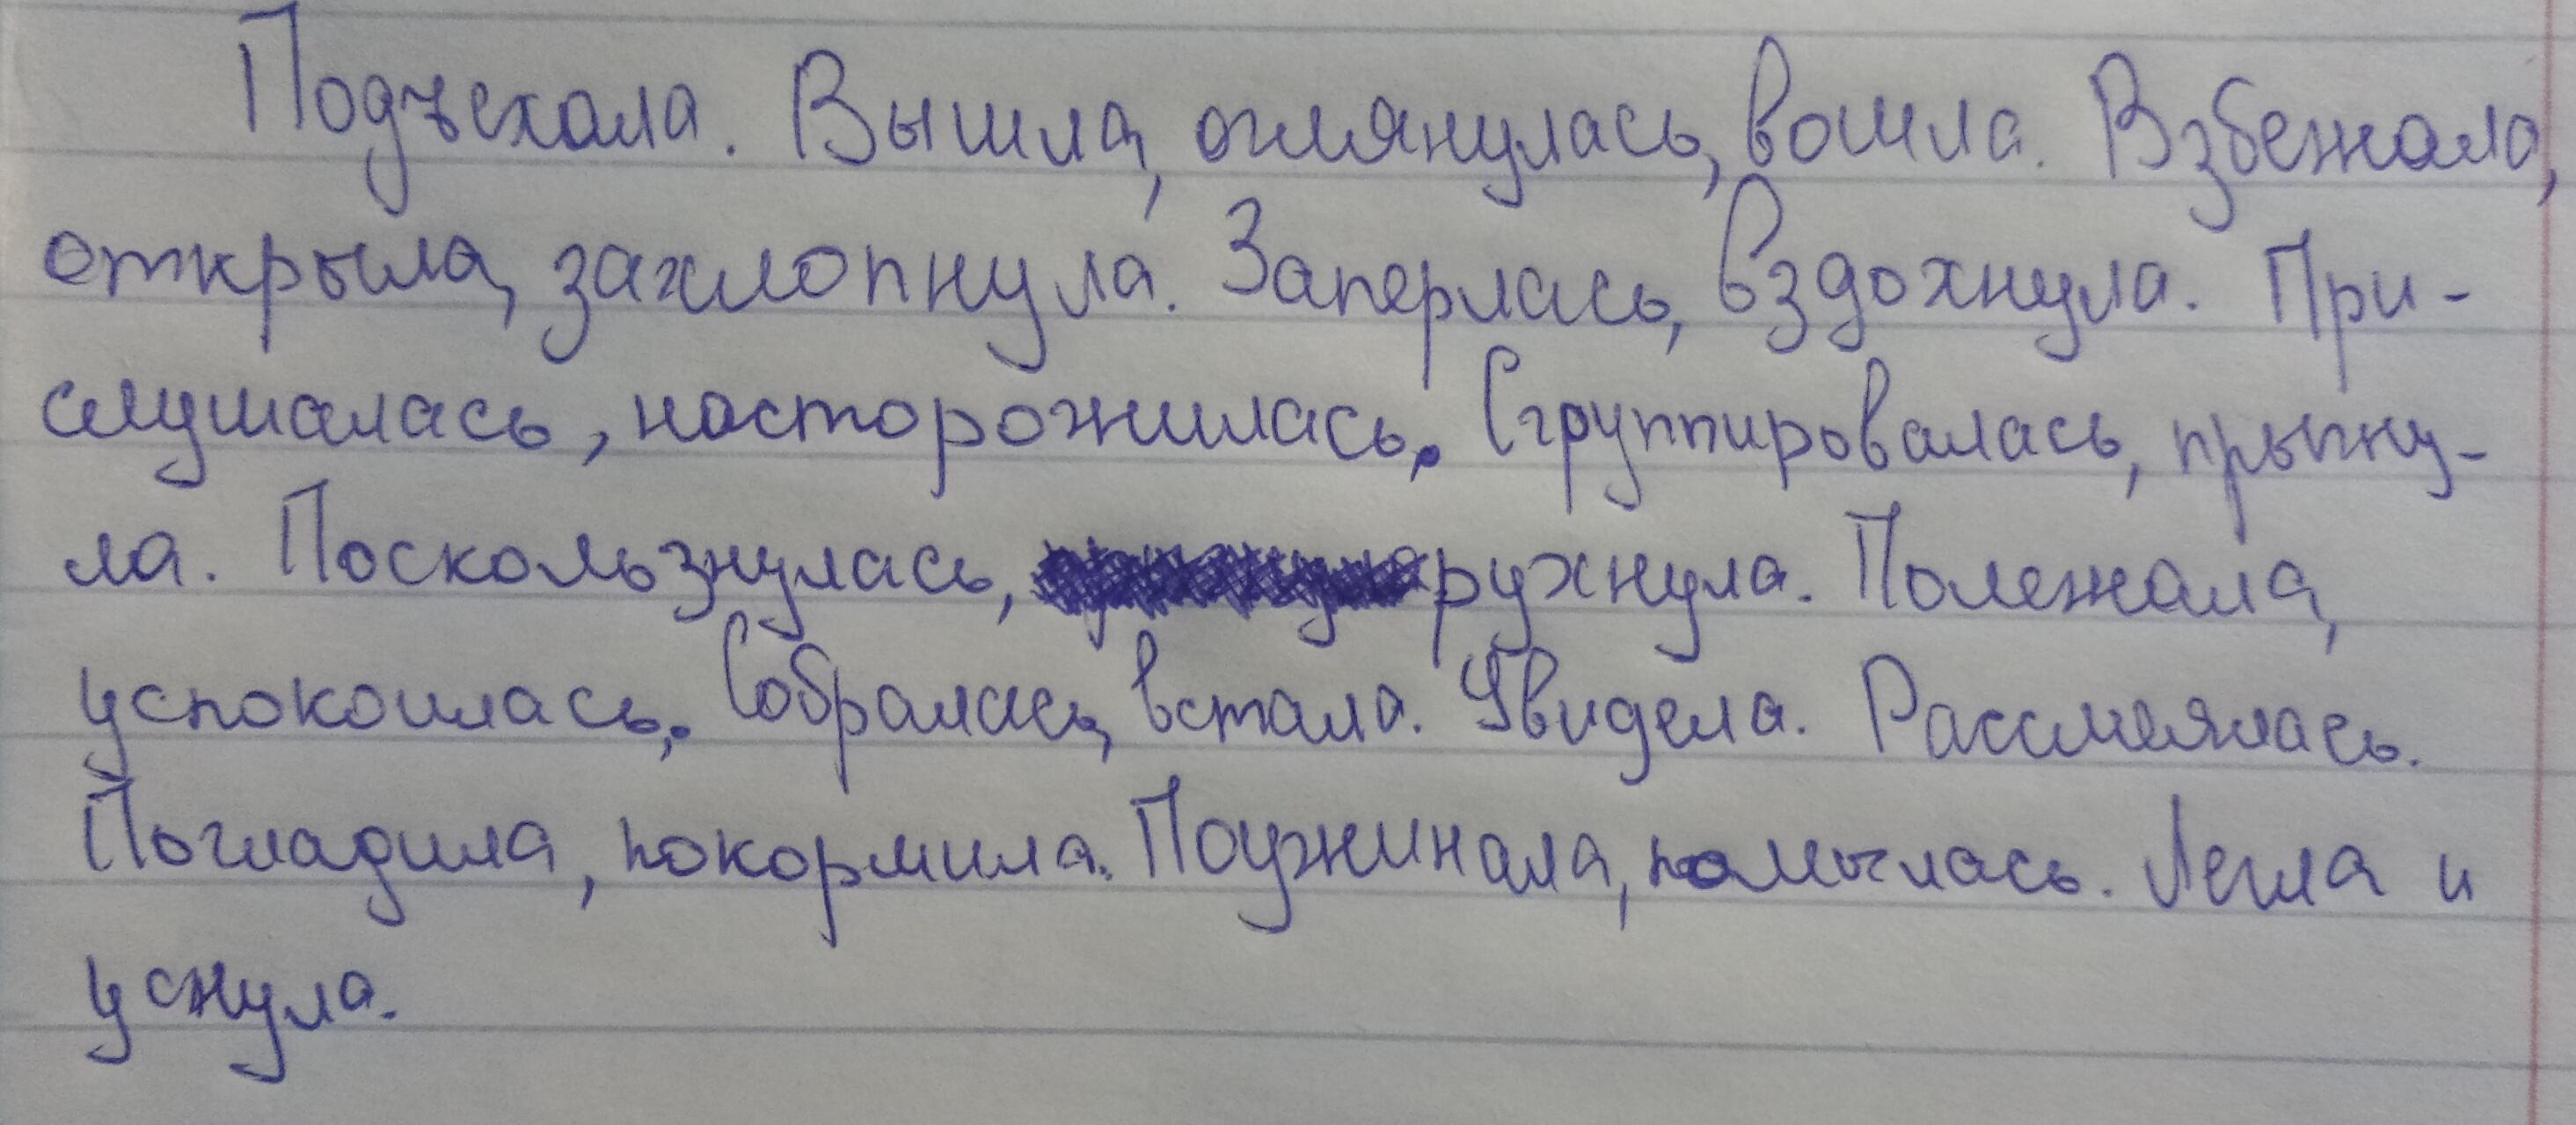 Подъехала. Вышла, оглянулась, вошла. Взбежала,
открыла, захлопнула. Заперлась, вздохнула. При-
слушалась, насторожилась. Сгруппировалась, прыгну-
ла. Поскользнулась, рухнула. Полежала,
успокоилась. Собралась, встала. Увидела. Рассмеялась.
Погладила, покормила. Поужинала, помылась. Легла и
уснула.